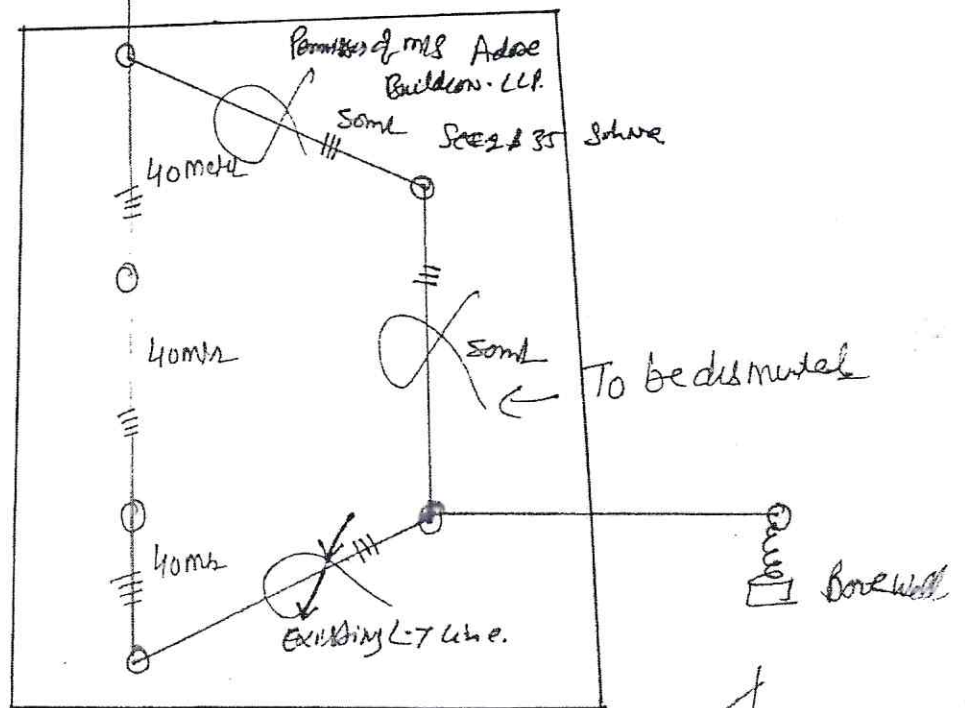 Permises of M/S Adore
Buildcon. LLP.
50mt
Sec 2 & 35 Sohna
40metr
40mtr
50mt
To be dismental
40mtr
Existing L-T Line.
Borewell